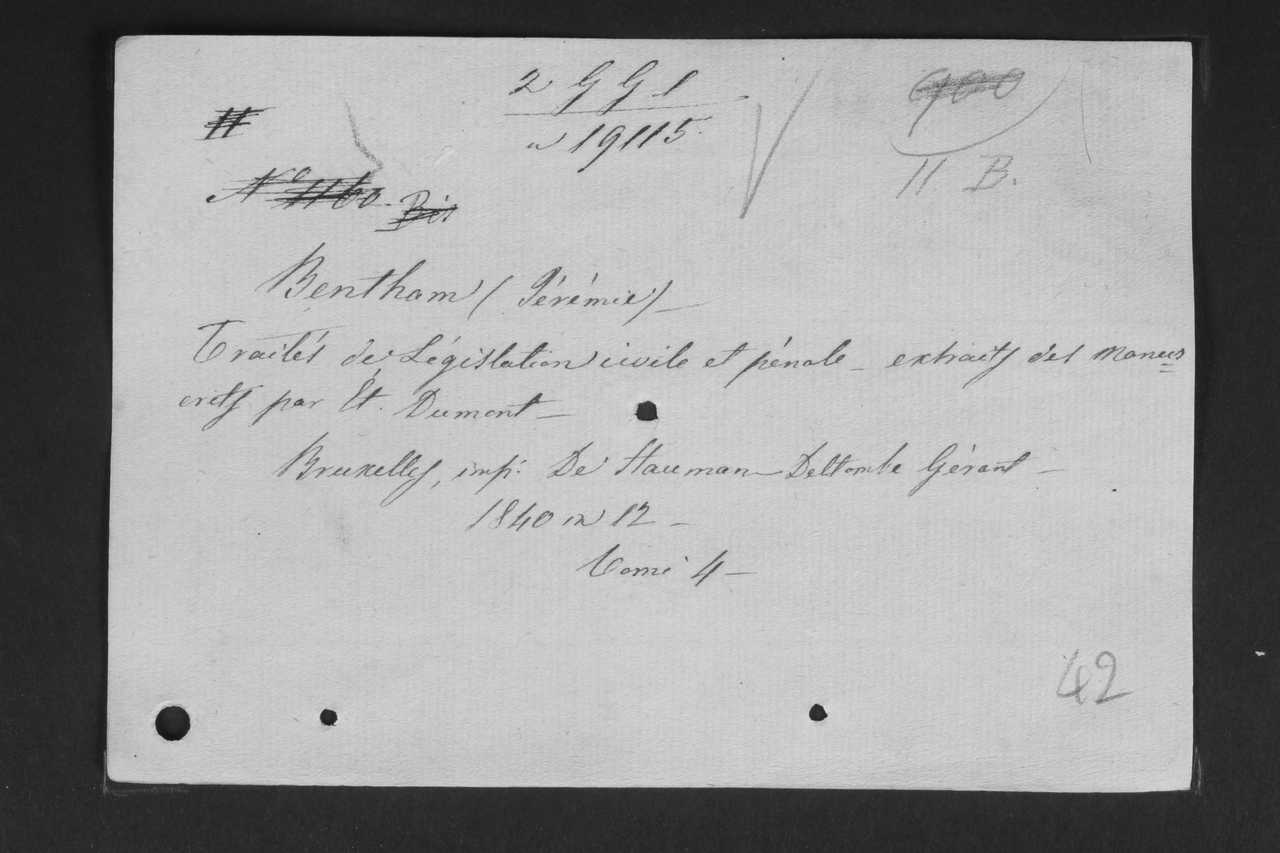 2 G G 1
19115
11 B.
N° 1160. Bis
Bentham (Jérémie) _
Traités de Législation civile et pénale _ extraits des Manus=
crits par Et. Dumont _
Bruxelles, imp. De Hauman Deltombe Gérant _
1840 in 12 _
Tome 4 _
42